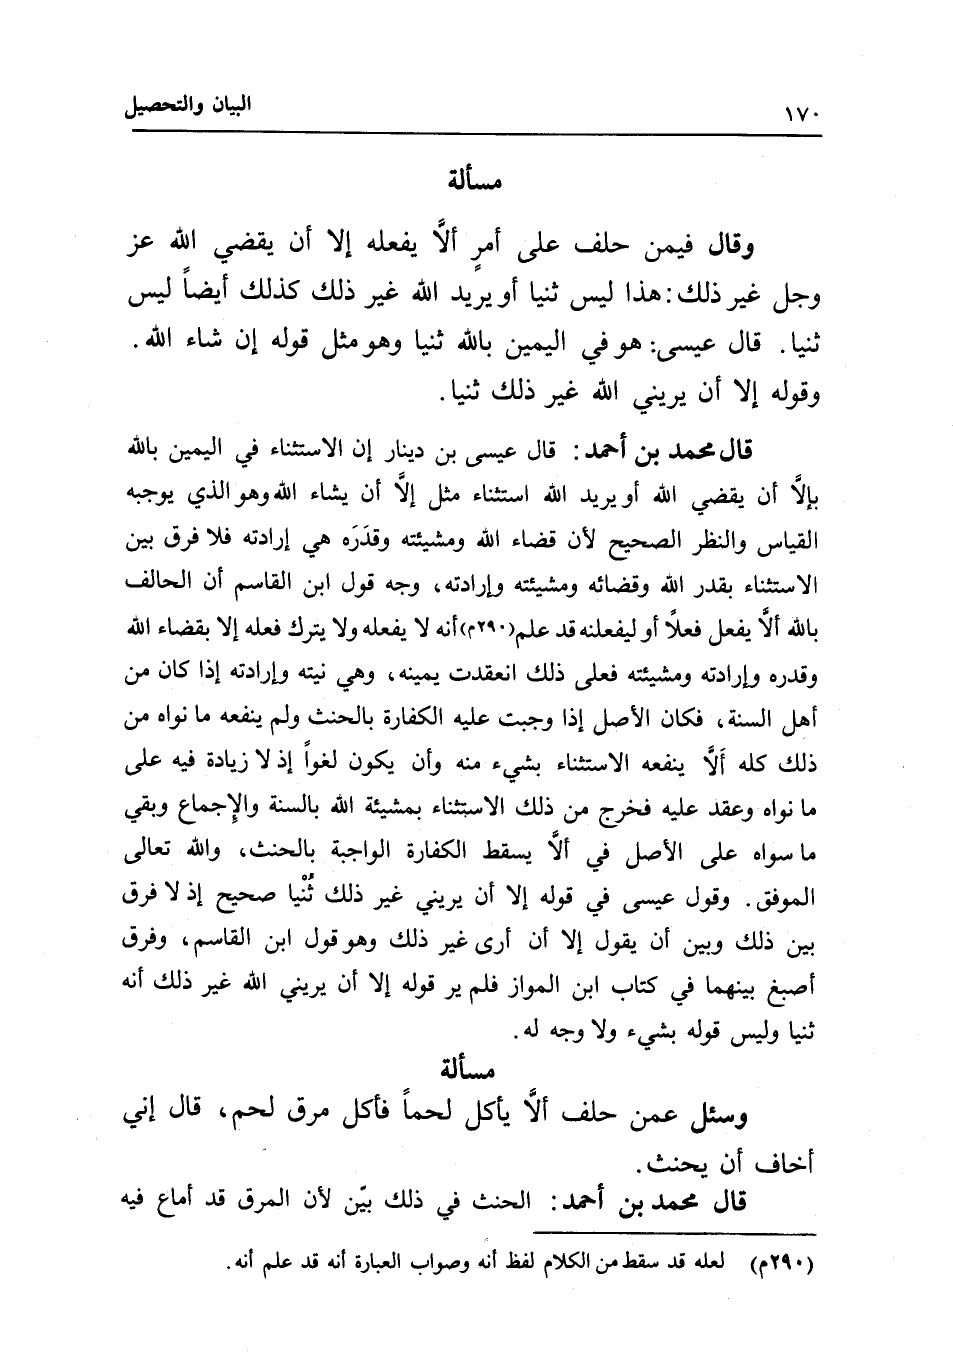 ١٧٠ البيان والتحصيل
مسألة
وقال فيمن حلف على أمرٍ ألَّا يفعله إلا أن يقضي الله عز
وجل غير ذلك: هذا ليس ثنيا أو يريد الله غير ذلك كذلك أيضاً ليس
ثنيا. قال عيسى: هو في اليمين بالله ثنيا وهو مثل قوله إن شاء الله.
وقوله إلا أن يريني الله غير ذلك ثنيا.
قال محمد بن أحمد: قال عيسى بن دينار إن الاستثناء في اليمين بالله
بإلَّا أن يقضي الله أو يريد الله استثناء مثل إلَّا أن يشاء الله وهو الذي يوجبه
القياس والنظر الصحيح لأن قضاء الله ومشيئته وقدَرَه هي إرادته فلا فرق بين
الاستثناء بقدر الله وقضائه ومشيئته وإرادته، وجه قول ابن القاسم أن الحالف
بالله ألَّا يفعل فعلاً أو ليفعلنه قد علم(٢٩٠م)أنه لا يفعله ولا يترك فعله إلا بقضاء الله
وقدره وإرادته ومشيئته فعلى ذلك انعقدت يمينه، وهي نيته وإرادته إذا كان من
أهل السنة، فكان الأصل إذا وجبت عليه الكفارة بالحنث ولم ينفعه ما نواه من
ذلك كله ألَّا ينفعه الاستثناء بشيء منه وأن يكون لغواً إذ لا زيادة فيه على
ما نواه وعقد عليه فخرج من ذلك الاستثناء بمشيئة الله بالسنة والإجماع وبقي
ما سواه على الأصل في ألَّا يسقط الكفارة الواجبة بالحنث، والله تعالى
الموفق. وقول عيسى في قوله إلا أن يريني غير ذلك ثُنْيا صحيح إذ لا فرق
بين ذلك وبين أن يقول إلا أن أرى غير ذلك وهو قول ابن القاسم، وفرق
أصبغ بينهما في كتاب ابن المواز فلم ير قوله إلا أن يريني الله غير ذلك أنه
ثنيا وليس قوله بشيء ولا وجه له.
مسألة
وسئل عمن حلف ألَّا يأكل لحماً فأكل مرق لحم، قال إني
أخاف أن يحنث.
قال محمد بن أحمد: الحنث في ذلك بيّن لأن المرق قد أماع فيه
(٢٩٠م) لعله قد سقط من الكلام لفظ أنه وصواب العبارة أنه قد علم أنه.